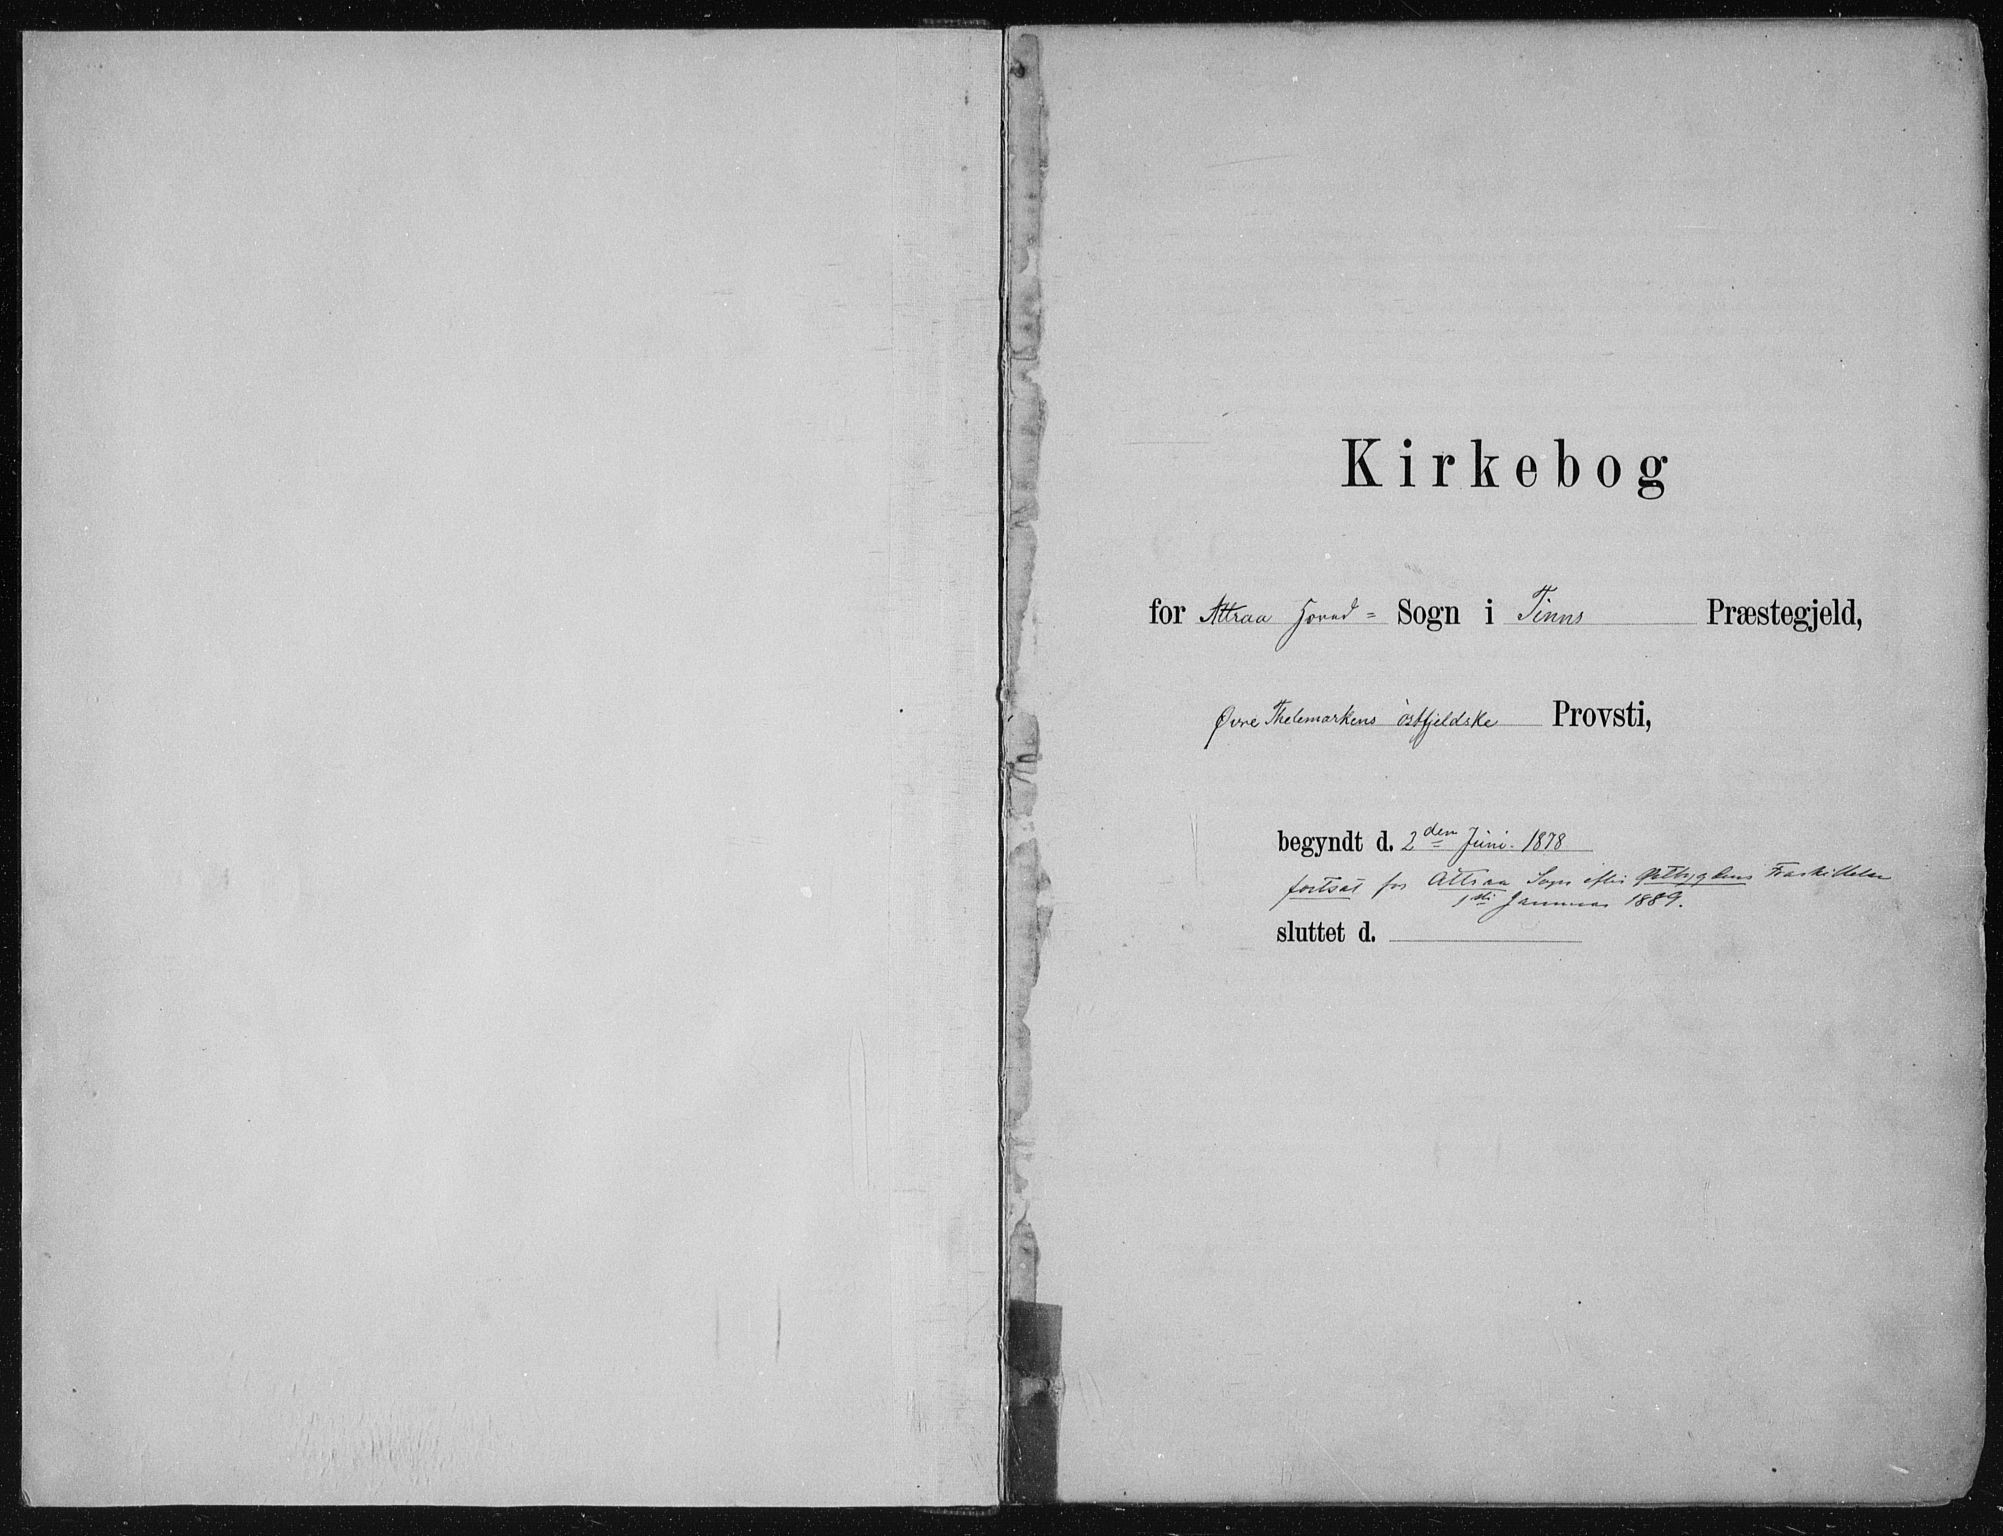 Kirkebog
for Attraa Hoved= Sogn i Tinns Præstegjeld,
Øvre Thelemarkens østfjeldske Provsti,
begyndt d. 2den Juni 1878
fortsat for Attraa Sogn efter Østbygdens Fraskillelse
1ste Januar 1889.
sluttet d.